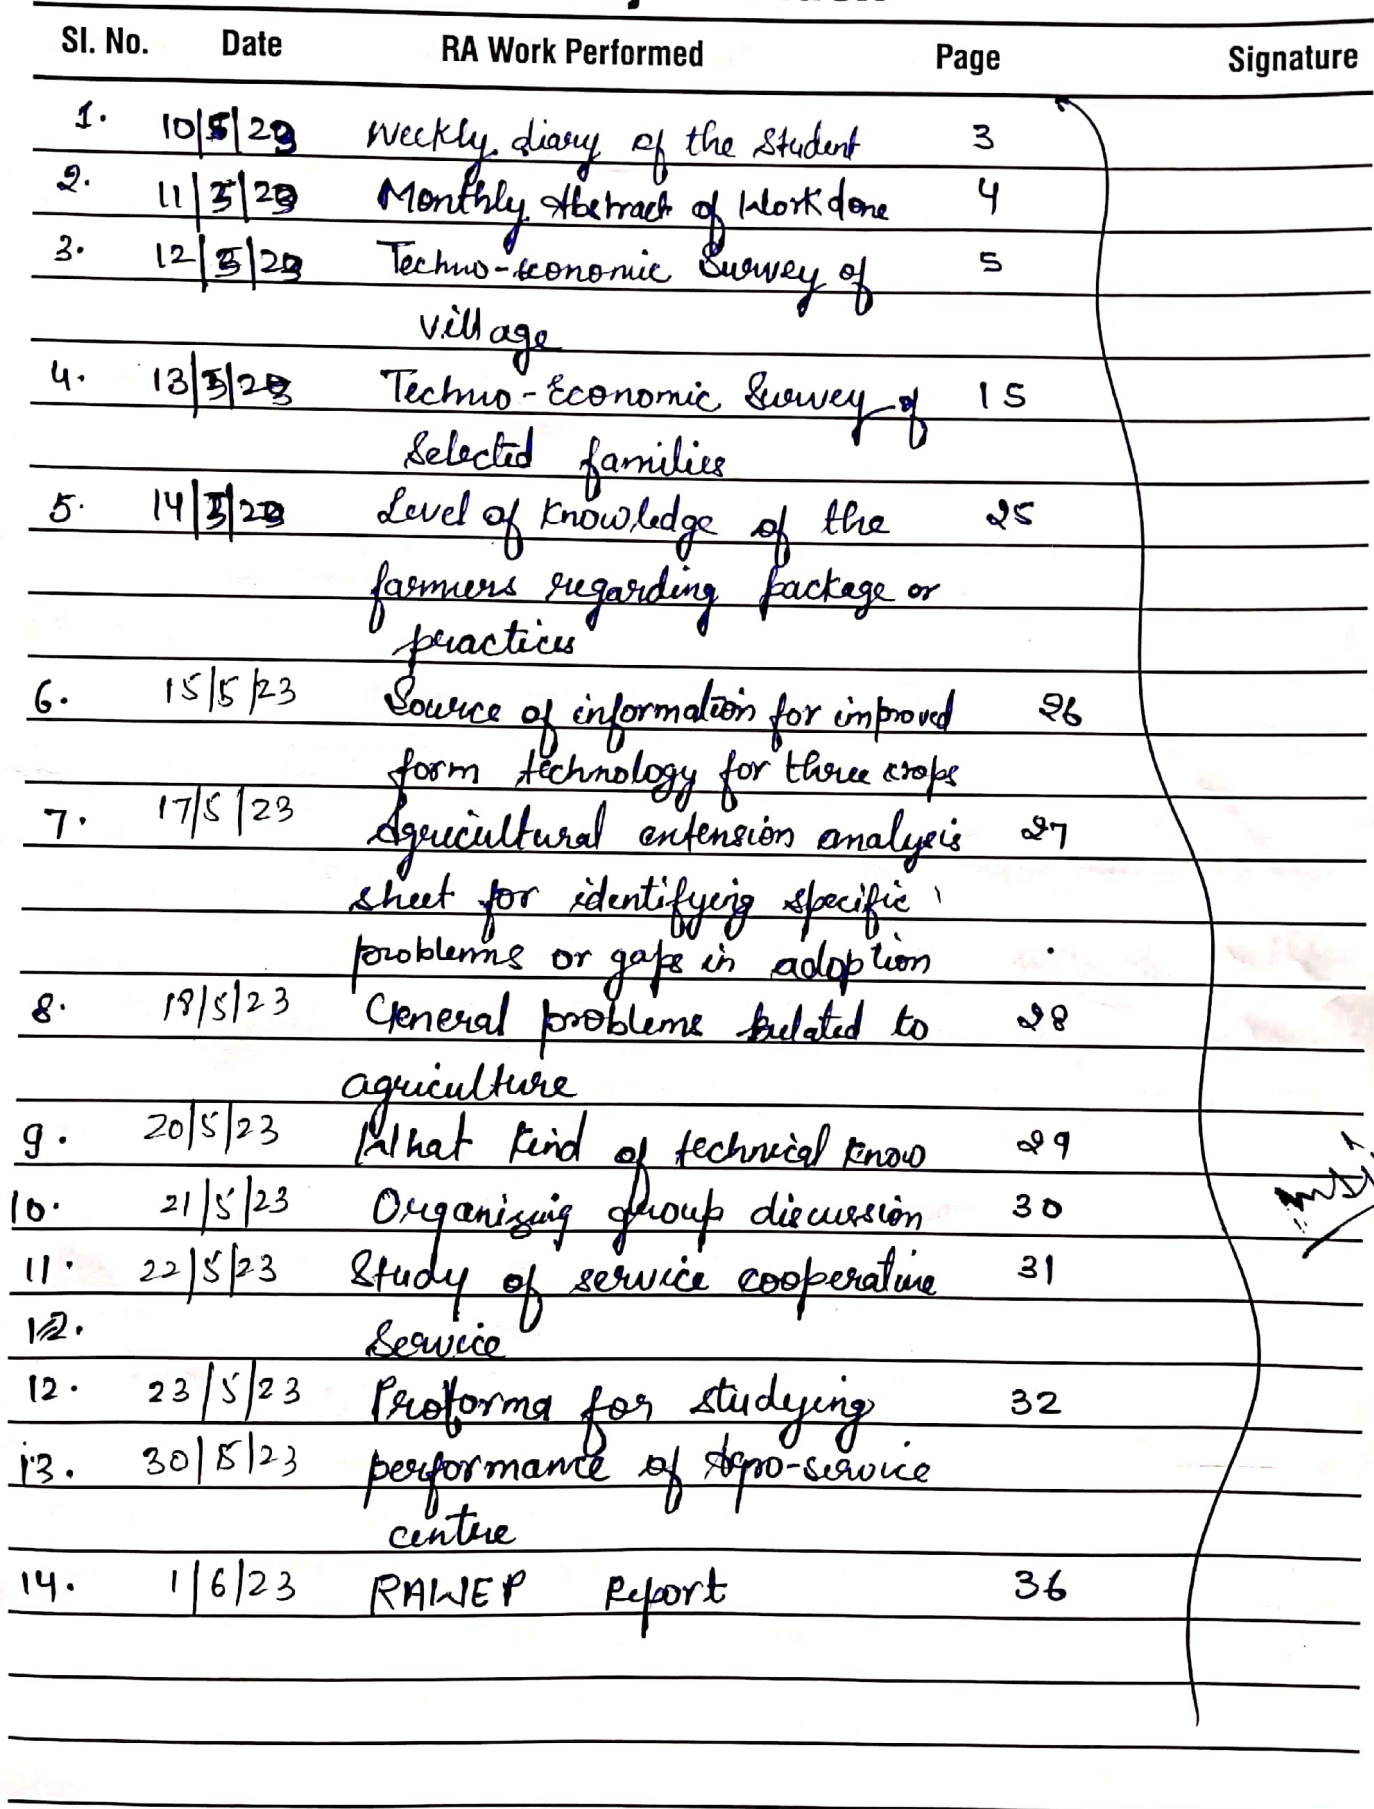 Sl. No. Date RA Work Performed Page Signature
1. 10/5/23 Weekly diary of the Student 3
2. 11/5/23 Monthly Abstract of Work done 4
3. 12/5/23 Techno-economic Survey of 5
village
4. 13/5/23 Techno-Economic Survey of 15
Selected families
5. 14/5/23 Level of Knowledge of the 25
farmers regarding package or
practices
6. 15/5/23 Source of information for improved 26
form technology for three crops
7. 17/5/23 Agricultural extension analysis 27
sheet for identifying specific
problems or gaps in adoption
8. 18/5/23 General problems related to 28
agriculture
9. 20/5/23 What kind of technical know 29
10. 21/5/23 Organising group discussion 30
11. 22/5/23 Study of service cooperative 31
12. Service
12. 23/5/23 Proforma for studying 32
13. 30/5/23 performance of Agro-service
centre
14. 1/6/23 RAWEP Report 36